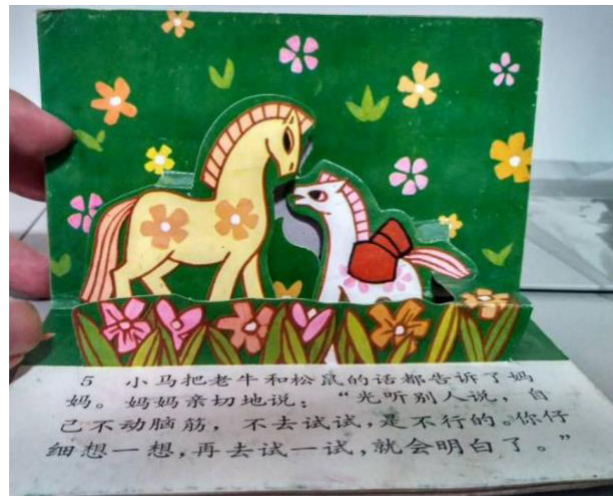 5 小马把老牛和松鼠的话都告诉了妈
妈。妈妈亲切地说：“光听别人说，自
己不动脑筋，不去试试，是不行的。你仔
细想一想，再去试一试，就会明白了。”